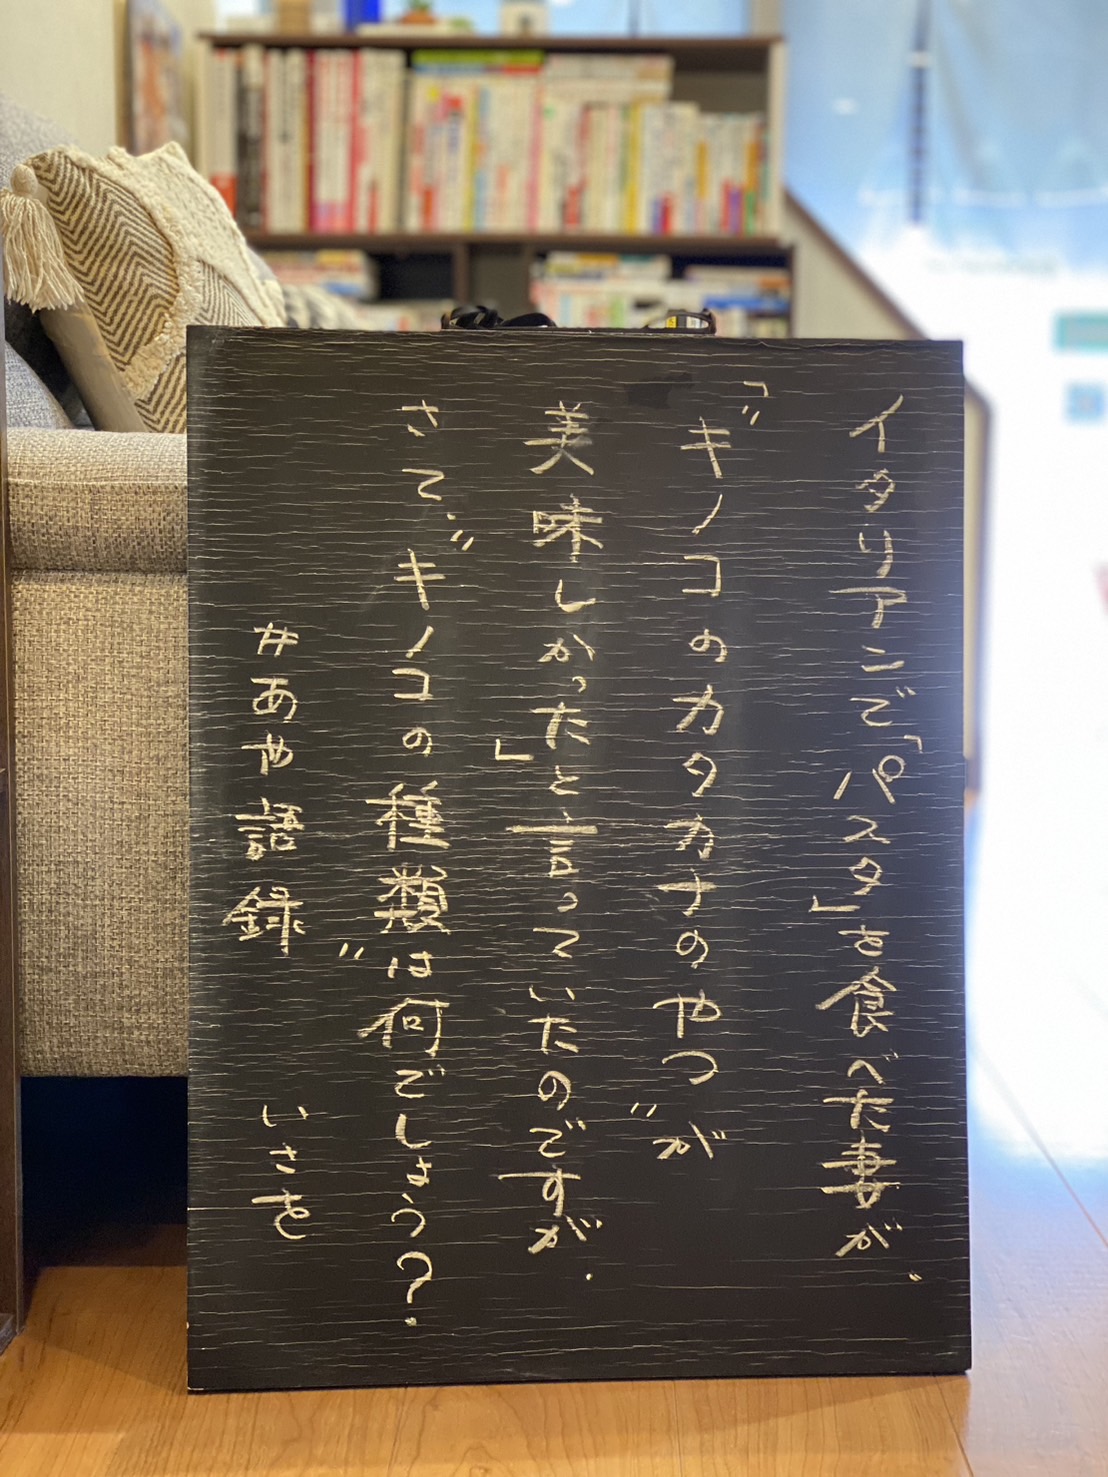 イタリアンで「パスタ」を食べた妻が、
「"キノコのカタカナのやつ"が
美味しかった」と言っていたのですが、
さて、"キノコの種類"は何でしょう？
#あや語録　いさを